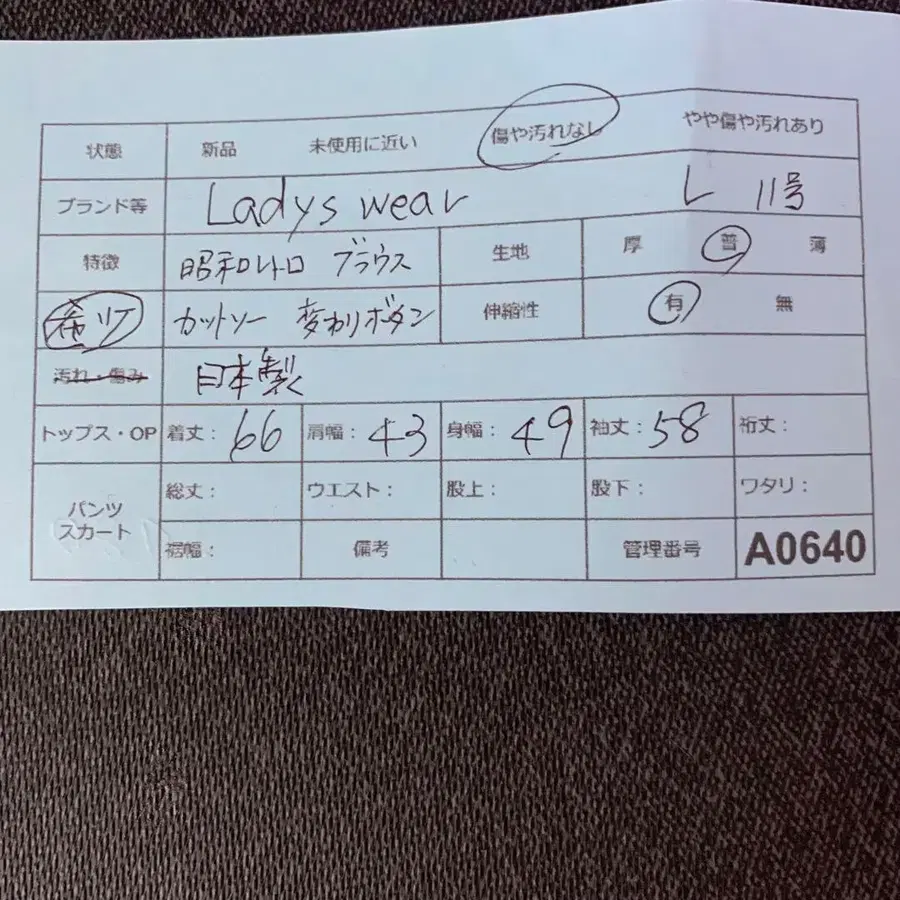 状態 新品 未使用に近い 傷や汚れなし やや傷や汚れあり
ブランド等 Ladys wear L 11号
特徴 昭和レトロ ブラウス 生地 厚 普 薄
カットソー 変わりボタン 伸縮性 有 無
汚れ・傷み 日本製
トップス・OP 着丈: 66 肩幅: 43 身幅: 49 袖丈: 58 裄丈:
パンツ
スカート
総丈: ウエスト: 股上: 股下: ワタリ:
裾幅: 備考 管理番号 A0640